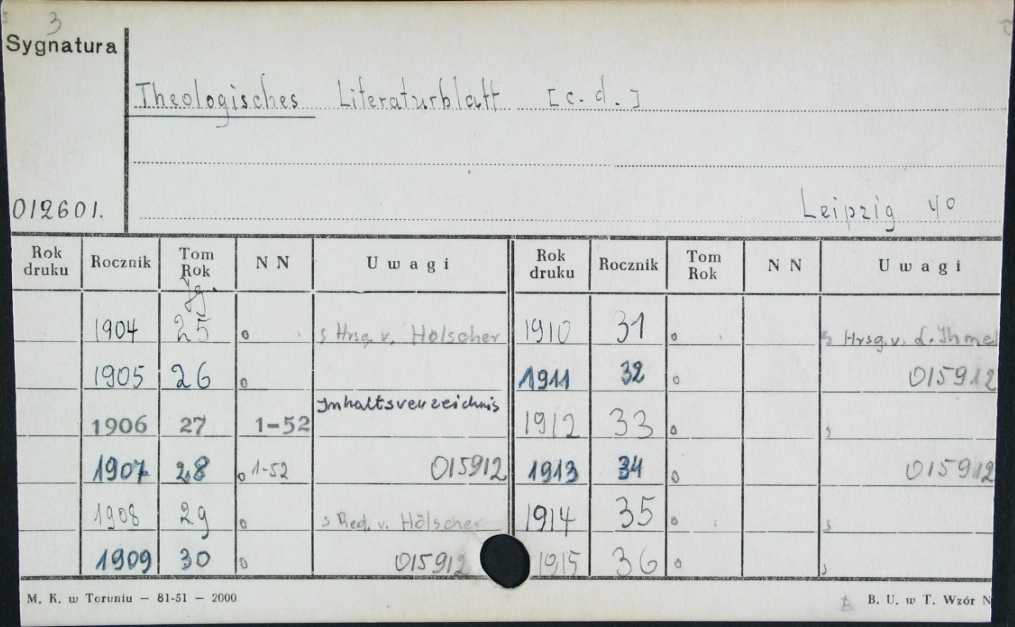 3
Sygnatura
Theologisches Literaturblatt [c.d.]
012601. Leipzig 4º
Rok druku Rocznik Tom Rok N N Uwagi Rok druku Rocznik Tom Rok N N Uwagi
Jg.
1904 25 s Hrsg. v. Hölscher 1910 31 s Hrsg. v. L. Ihmel
1905 26 1911 32 015912
1906 27 1-52 Inhaltsverzeichnis 1912 33
1907 28 1-52 015912 1913 34 015912
1908 29 s Red. v. Hölscher 1914 35
1909 30 015912 1915 36
M. K. w Toruniu — 81-51 — 2000 B. U. w T. Wzór N